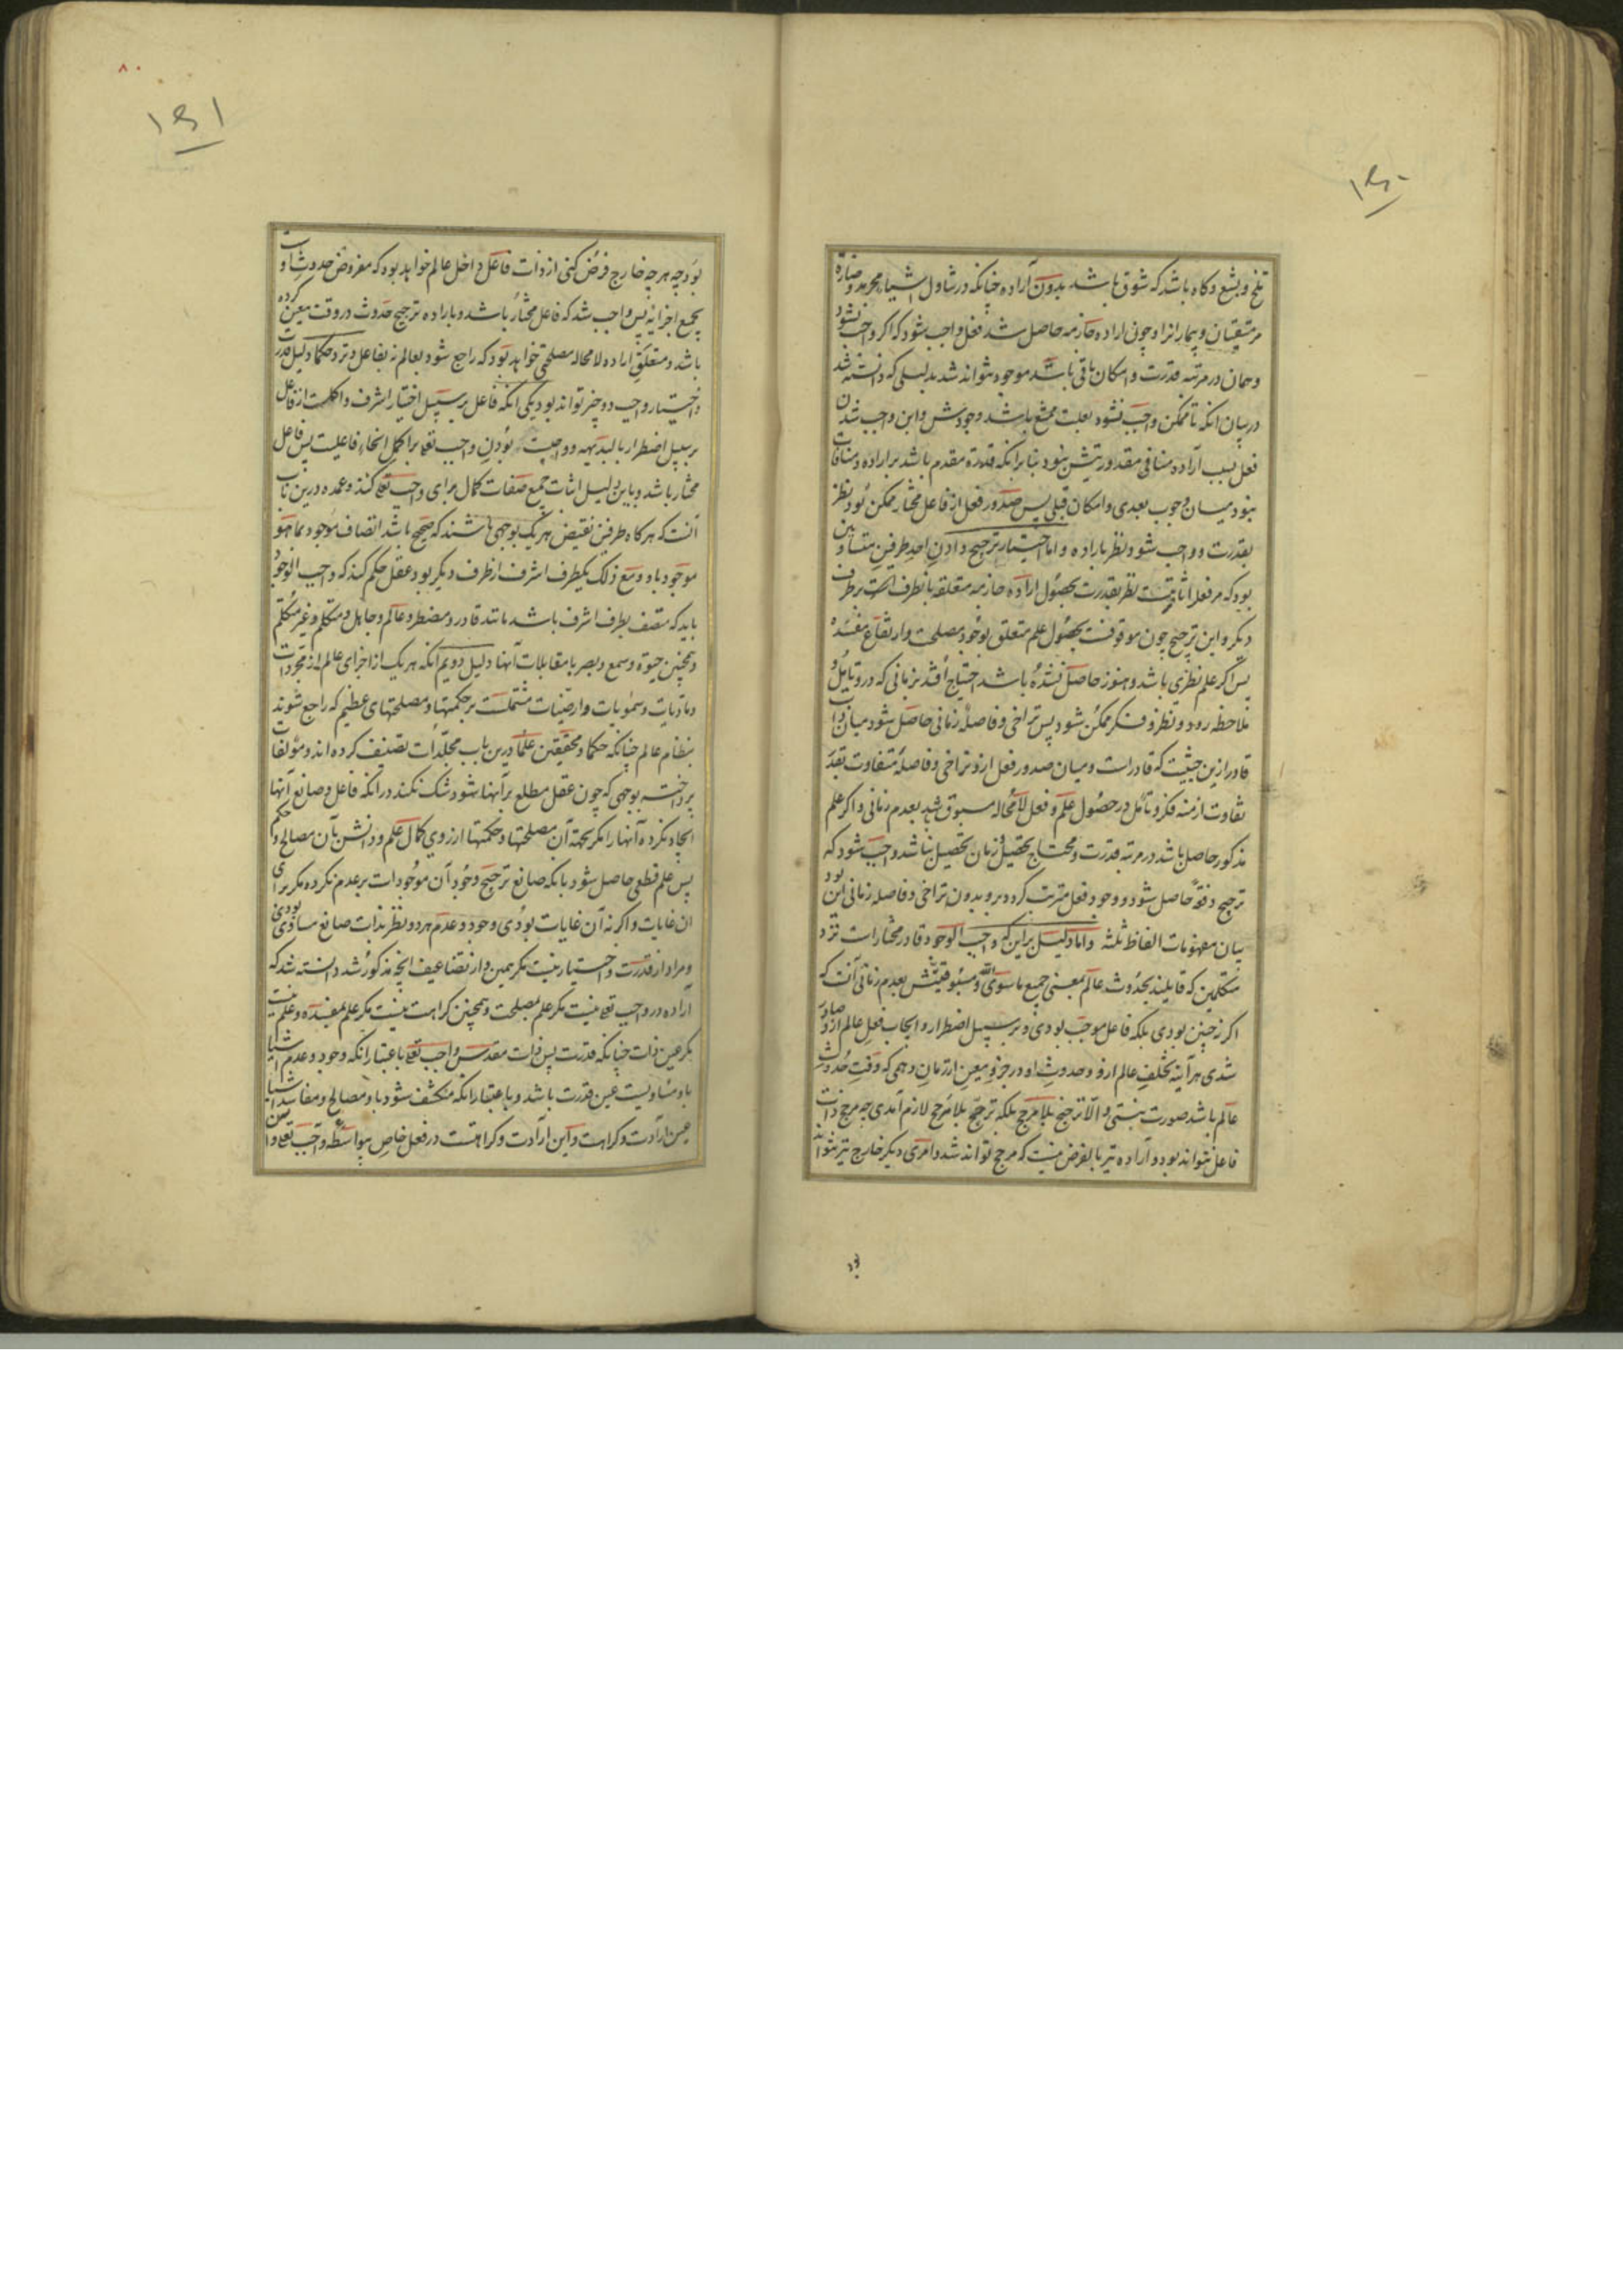 ۱۵۰
تلخ و بشع و کاه باشد که شوق باشد بدون اراده چنانکه در تناول اشیاء محرمه و ضاره
مر متقیان و بیمارانرا و چون اراده جازمه حاصل شد فعل واجب شود که اکر واجب نشود
و همان در مرتبه قدرت و امکان باقی باشد موجود نتواند شد بدلیلی که دانسته شد
در بیان انکه تا ممکن واجب نشود بعلت ممتنع باشد وجودش و این واجب شدن
فعل بسبب اراده منافی مقدوریتش نبود بنا بر انکه قدرة مقدم باشد بر اراده و منافات
نبود میان وجوب بعدی و امکان قبلی پس صدور فعل از فاعل مختار ممکن بود نظر
بقدرت و واجب شود نظر باراده و اما اختیار ترجیح دادن احد طرفین متساویین
بود که مر فعل را ثابتست نظر بقدرت بحصول اراده جازمه متعلقه بانطرف است بر طرف
دیکر و این ترجیح چون موقوفست بحصول علم متعلق بوجود مصلحت و ارتفاع مفسده
پس اکر علم نظری باشد و هنوز حاصل نشده باشد احتیاج افتد بزمانی که در و تأمل و
ملاحظه رود و نظر و فکر ممکن شود پس تراخی و فاصلهٔ زمانی حاصل شود میان ذات
قادر ازین حیثیت که قادر است و میان صدور فعل ازو و تراخی و فاصلهٔ متفاوت بقدر
تفاوت ازمنه فکر و تأمل در حصول علم و فعل لامحاله مسبوق باشد بعدم زمانی و اکر علم
مذکور حاصل باشد در مرتبه قدرت و محتاج بتحصیل و زمان تحصیل نباشد واجب شود که
ترجیح دفعةً حاصل شود و وجود فعل مترتب کردد برو بدون تراخی و فاصله زمانی این بود
بیان مفهومات الفاظ ثلثه و اما دلیل بر این که واجب الوجود قادر مختار است نزد
متکلمین که قایلند بحدوث عالم بمعنی جمیع ما سوی الله و مسبوقیتش بعدم زمانی آنست که
اکر نه چنین بودی بلکه فاعل موجب بودی و بر سبیل اضطرار و ایجاب فعل عالم ازو صادر
شدی هر آینه تخلف عالم ازو و حدوث او در جزو معین از زمان وهمی که وقت حدوث
عالم باشد صورت نبستی و الا ترجیح بلا مرجح بلکه ترجح بلا مرجح لازم آمدی چه مرجح ذات
فاعل نتواند بود و اراده نیز بالفرض نیست که مرجح تواند شد و امری دیکر خارج نیز نتواند
۸۰
۱۵۱
بود چه هر چه خارج فرض کنی از ذات فاعل داخل عالم خواهد بود که مفروض حدوث اوست
بجمیع اجزایه پس واجب شد که فاعل مختار باشد و باراده ترجیح حدوث در وقت معین کرده
باشد و متعلق اراده لامحاله مصلحتی خواهد بود که راجع شود بعالم نه بفاعل و نزد حکما دلیل قدرت
و اختیار واجب دو چیز تواند بود یکی انکه فاعل بر سبیل اختیار اشرف و اکملست از فاعل
بر سبیل اضطرار بالبدیهه و واجبست بودن واجب تعالی بر اکمل انحاء فاعلیت پس فاعل
مختار باشد و باین دلیل اثبات جمیع صفات کمال برای واجب تعالی کنند و عمده درین باب
آنست که هرکاه طرفین نقیض هر یک بوجهی باشند که صحیح باشد اتصاف موجود بما هو
موجود باو و مع ذلک یکطرف اشرف از طرف دیکر بود عقل حکم کند که واجب الوجود
باید که متصف بطرف اشرف باشد مانند قادر و مضطر و عالم و جاهل و متکلم و غیر متکلم
و همچنین حیوة و سمع و بصر با مقابلات آنها دلیل دویم آنکه هر یک از اجزای عالم از مجردات
و مادیات و سمویات و ارضیات مشتملست بر حکمتها و مصلحتهای عظیم که راجع شوند
بنظام عالم چنانکه حکما و محققین علما درین باب مجلدات تصنیف کرده اند و مؤلفات
پرداخته بوجهی که چون عقل مطلع بر آنها شود شک نکند در انکه فاعل و صانع آنها
ایجاد نکرده آنها را مکر بجهة آن مصلحتها و حکمتها از روی کمال علم و دانش بآن مصالح و حکم
پس علم قطعی حاصل شود بانکه صانع ترجیح وجود آن موجودات بر عدم نکرده مکر برای
ان غایات و اکر نه آن غایات بودی وجود و عدم هر دو بنظر بذات صانع مساوی بودی
و مراد از قدرت و اختیار نیست مکر همین و از تضاعیف انچه مذکور شد دانسته شد که
اراده در واجب تعالی نیست مکر علم بمصلحت و همچنین کراهت نیست مکر علم بمفسده و علم نیست
مکر عین ذات چنانکه قدرت پس ذات مقدس واجب تعالی باعتبار انکه وجود و عدم اشیا
باو مساویست عین قدرت باشد و باعتبار انکه منکشف شود باو مصالح و مفاسد اشیا
عین ارادت و کراهت و این ارادت و کراهتست در فعل خاص بیواسطه واجب تعالی و اما